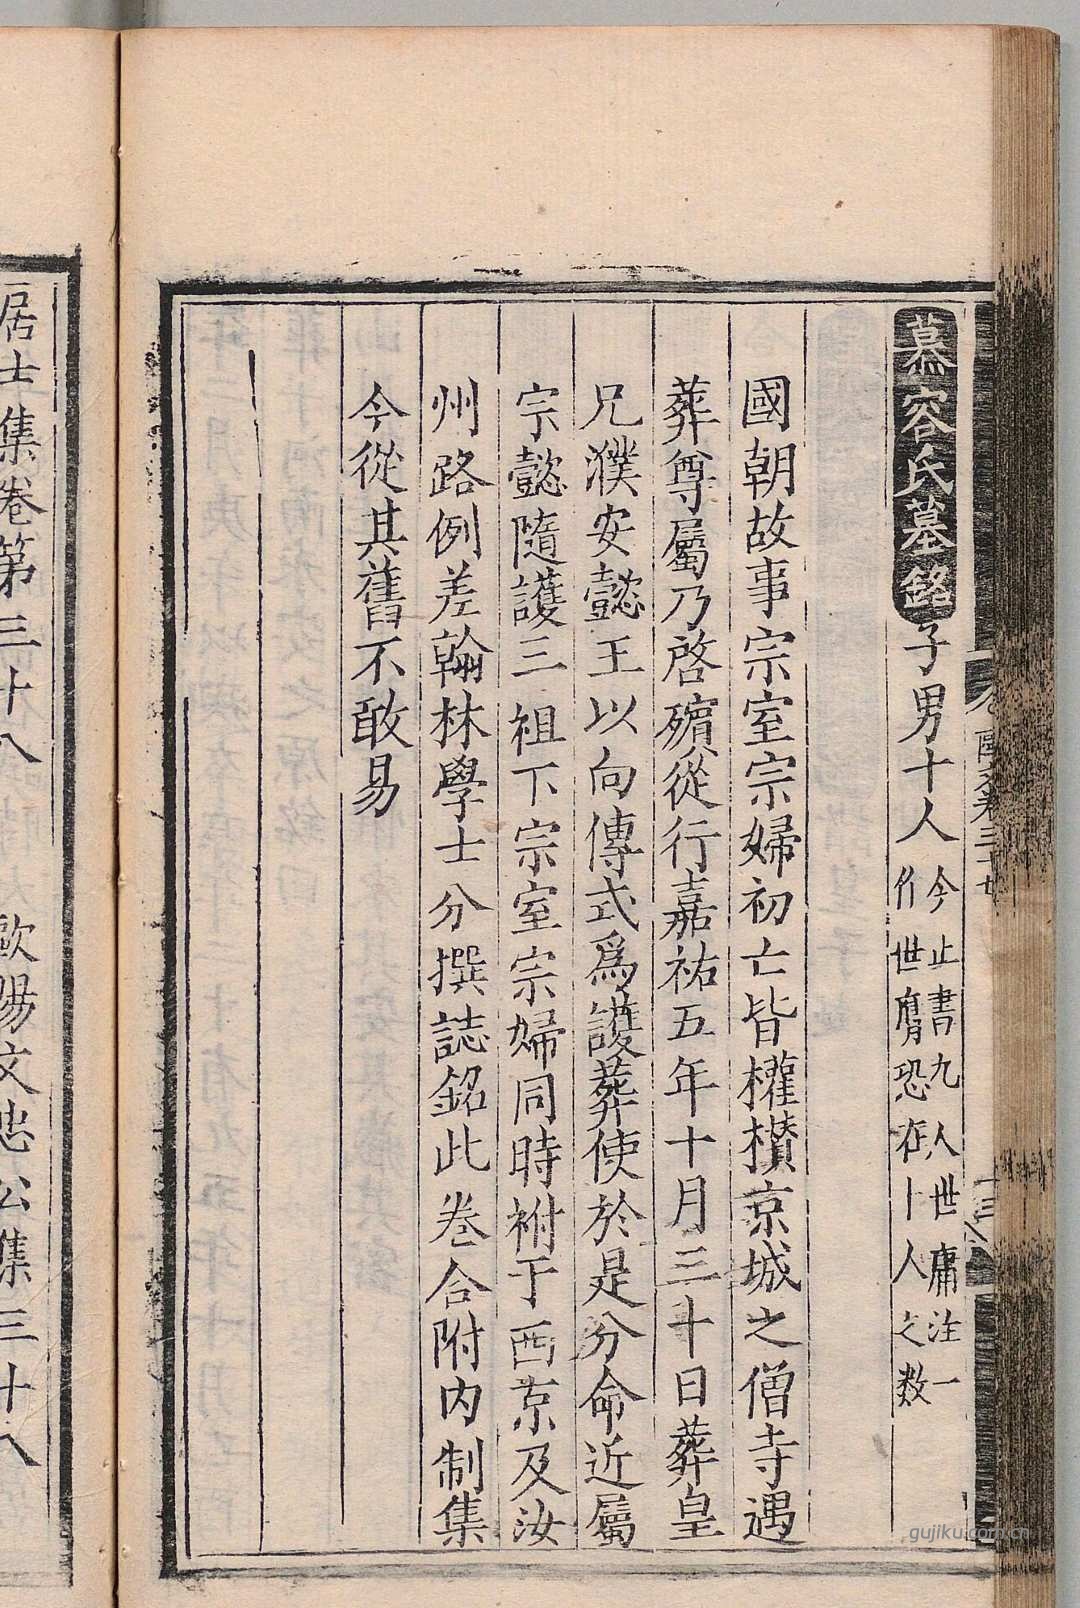 慕容氏墓銘子男十人今止書九人世庸注一
作世膺恐在十人之数
國朝故事宗室宗婦初亡皆權攢京城之僧寺遇
葬尊屬乃啓殯從行嘉祐五年十月三十日葬皇
兄濮安懿王以向傳式爲護葬使於是分命近屬
宗懿隨護三祖下宗室宗婦同時祔于西京及汝
州路例差翰林學士分撰誌銘此卷合附内制集
今從其舊不敢易
居士集卷第三十八 歐陽文忠公集三十八
gujiku.com.cn